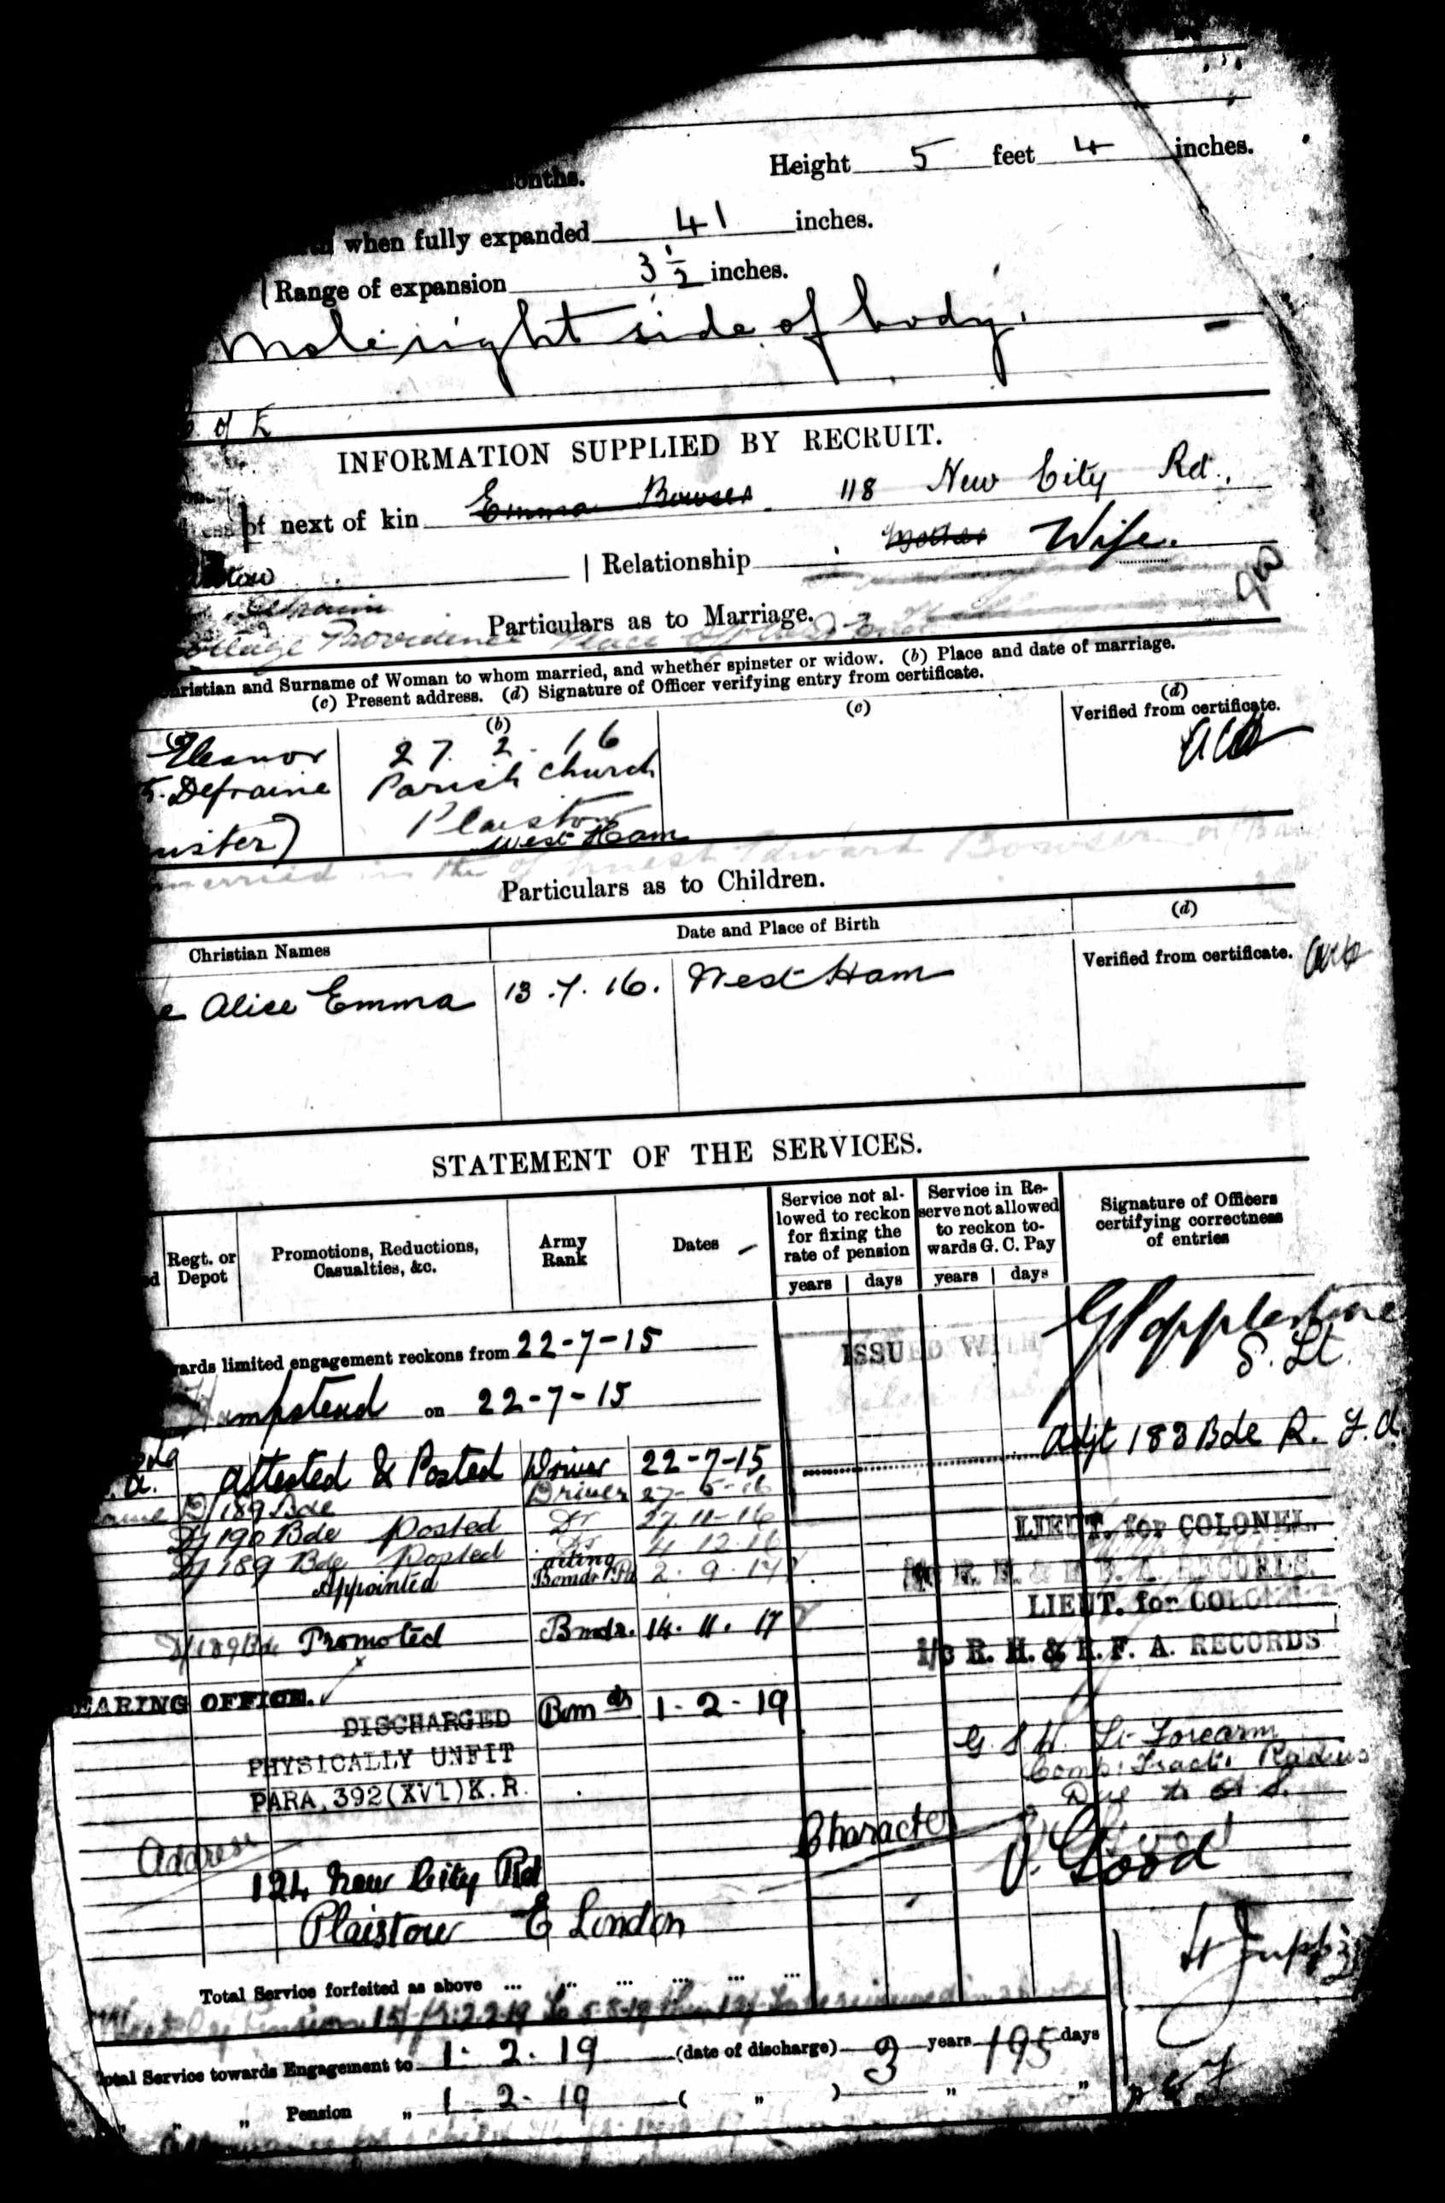 onths. Height 5 feet 4 inches.
when fully expanded 41 inches.
Range of expansion 3½ inches.
Mole right side of body.
of
INFORMATION SUPPLIED BY RECRUIT.
of next of kin Emma Bowser 118 New City Rd.
stow | Relationship Mother Wife.
Particulars as to Marriage.
Providence Place
hristian and Surname of Woman to whom married, and whether spinster or widow. (b) Place and date of marriage.
(c) Present address. (d) Signature of Officer verifying entry from certificate.
(b) (c) (d)
Verified from certificate.
Eleanor 27. 2. 16
Defraine Parish Church
Plaistow
nster) West Ham
married in the of Ernest Edward Bowser
Particulars as to Children.
Christian Names Date and Place of Birth (d)
Verified from certificate.
e Alice Emma 13.7.16. West Ham
STATEMENT OF THE SERVICES.
Regt. or Depot Promotions, Reductions, Casualties, &c. Army Rank Dates Service not allowed to reckon for fixing the rate of pension Service in Reserve not allowed to reckon towards G. C. Pay Signature of Officers certifying correctness of entries
years days years days
wards limited engagement reckons from 22-7-15
ISSUED WITH
S. Lt.
Hampstead on 22-7-15
Adjt 183 Bde R. F. A.
a. Attested & Posted Driver 22-7-15
D/189 Bde Driver 27-5-16
D/190 Bde Posted Dr 27.11-16
LIEUT. for COLONEL.
D/189 Bde Posted Dr 4.12.16
Appointed Acting Bomdr Pd 2.9.17
R. H. & R. F. A. RECORDS.
LIEUT. for COLONEL
D/189 Bde Promoted Bmdr. 14.11.17
I/c R. H. & R. F. A. RECORDS
EARING OFFICE.
DISCHARGED Bmdr 1-2-19
PHYSICALLY UNFIT
PARA, 392(XVI)K.R.
G. S. W. Lt Forearm
Comp: Fract: Radius
Due to A. S.
Address
Character V. Good
124 New City Rd
Plaistow E London
Total Service forfeited as above ... ... ... ... ... ...
otal Service towards Engagement to 1. 2. 19 (date of discharge) 3 years 195 days
" " Pension " 1-2-19 ( " ) " "